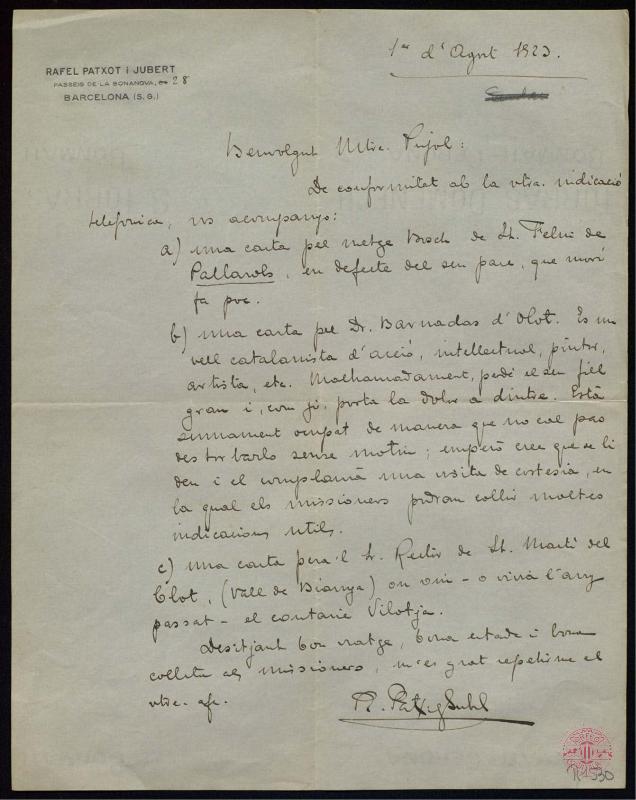 RAFEL PATXOT i JUBERT
PASSEIG DE LA BONANOVA, 28
BARCELONA (S. G.)
1er d'Agost 1923.
Benvolgut Mtre. Pujol:
De conformitat ab la vtra. indicació
telefonica, us acompanyo:
a) una carta pel metge Bosch de St. Feliu de
Pallarols, en defecte del seu pare, que morí
fa poc.
b) una carta pel Dr. Barnadas d'Olot. Es un
vell catalanista d'acció, intellectual, pintor,
artista, etc. Malhauradament, perdé el seu fill
gran i, com jo, porta la dolor a dintre. Està
sumament ocupat de manera que no cal pas
destorbarlo sense motiu; emperò crec que se li
deu i el complaurà una visita de cortesia, en
la qual els missioners podran collir moltes
indicacions utils.
c) una carta pera'l Sr. Rector de St. Martí del
Clot, (Vall de Bianya) on viu - o vivia l'any
passat - el cantaire Vilotja.
Desitjant bon viatge, bona estada i bona
collita als missioners, m'es grat repetirme el
vtre. afc.
R. Patxot y Jubert
ORFEO